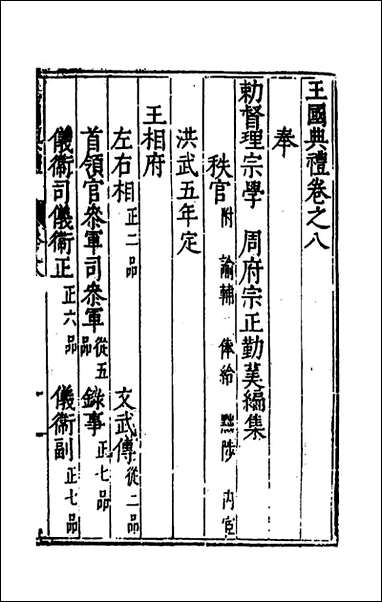 王國典禮卷之八
奉
勅督理宗學 周府宗正勤羙編集
秩官 附 諭輔 俸給 黜陟 内官
洪武五年定
王相府
左右相 正二品 文武傅 從二品
首領官叅軍司叅軍 從五品 錄事 正七品
儀衛司儀衛正 正六品 儀衛副 正七品